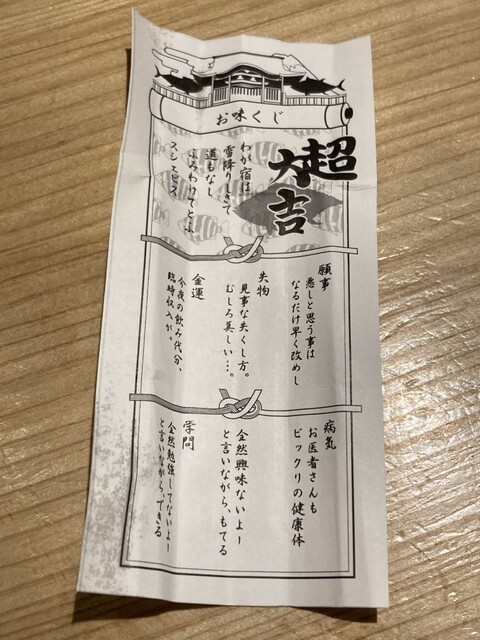 お味くじ
超大吉
わが宿は
雪降りしきて
道もなし
ふみわけてとふ
スシエビス
願事
悪しと思う事は
なるだけ早く改めし
失物
見事な失くし方。
むしろ美しい…。
金運
今夜の飲み代分、
臨時収入が。
病気
お医者さんも
ビックリの健康体
全然興味ないよー
と言いながら、もてる
学問
全然勉強してないよー
と言いながら、できる